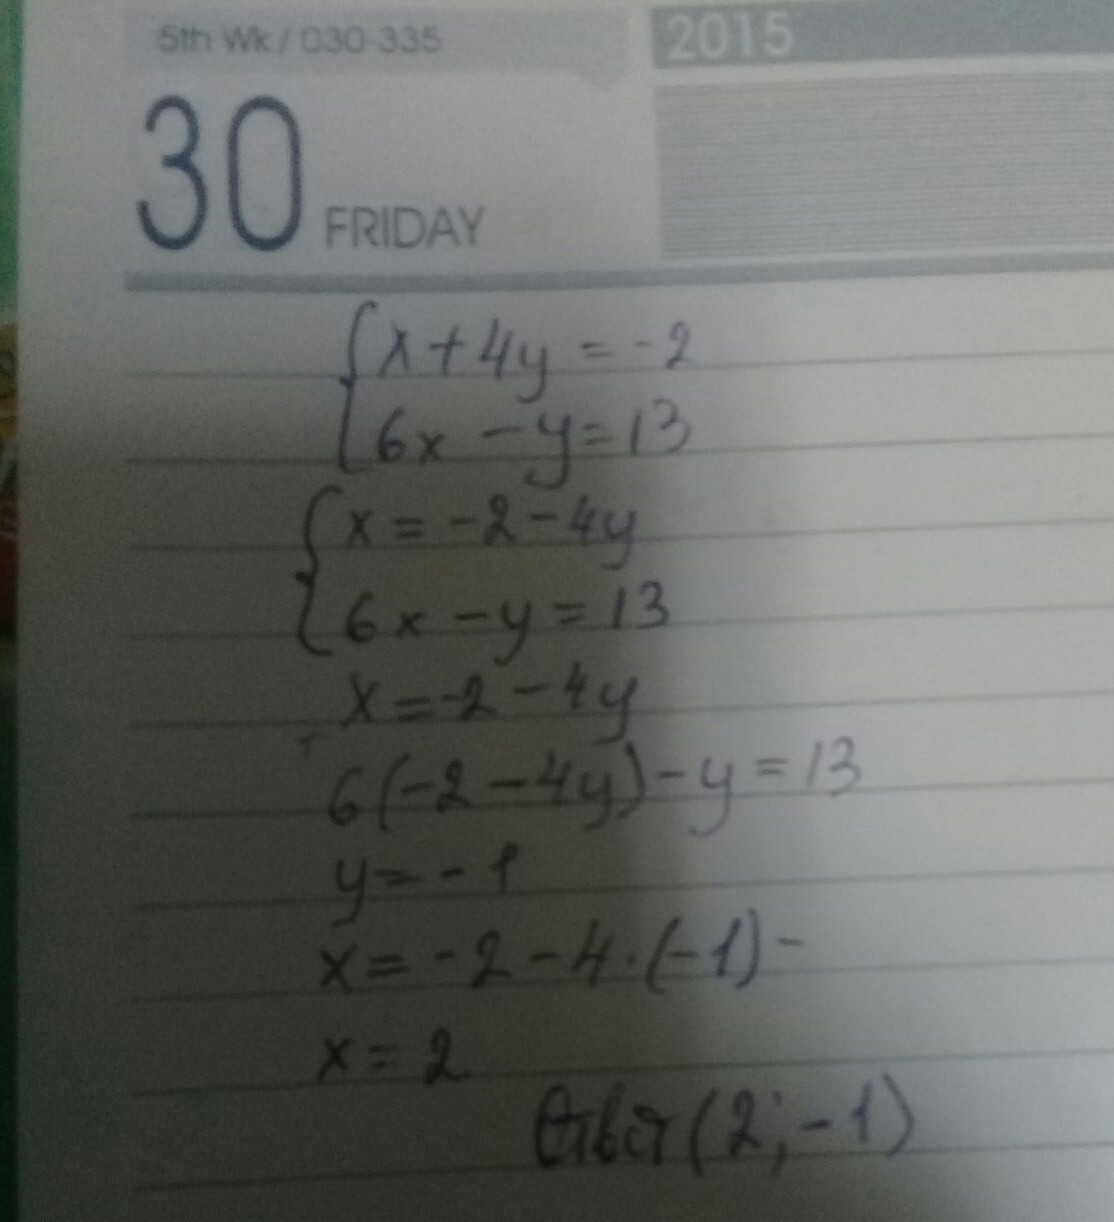 5th Wk / 030-335
2015
30 FRIDAY
x + 4y = -2
6x - y = 13
x = -2 - 4y
6x - y = 13
x = -2 - 4y
6(-2 - 4y) - y = 13
y = -1
x = -2 - 4·(-1) -
x = 2
Ответ (2; -1)